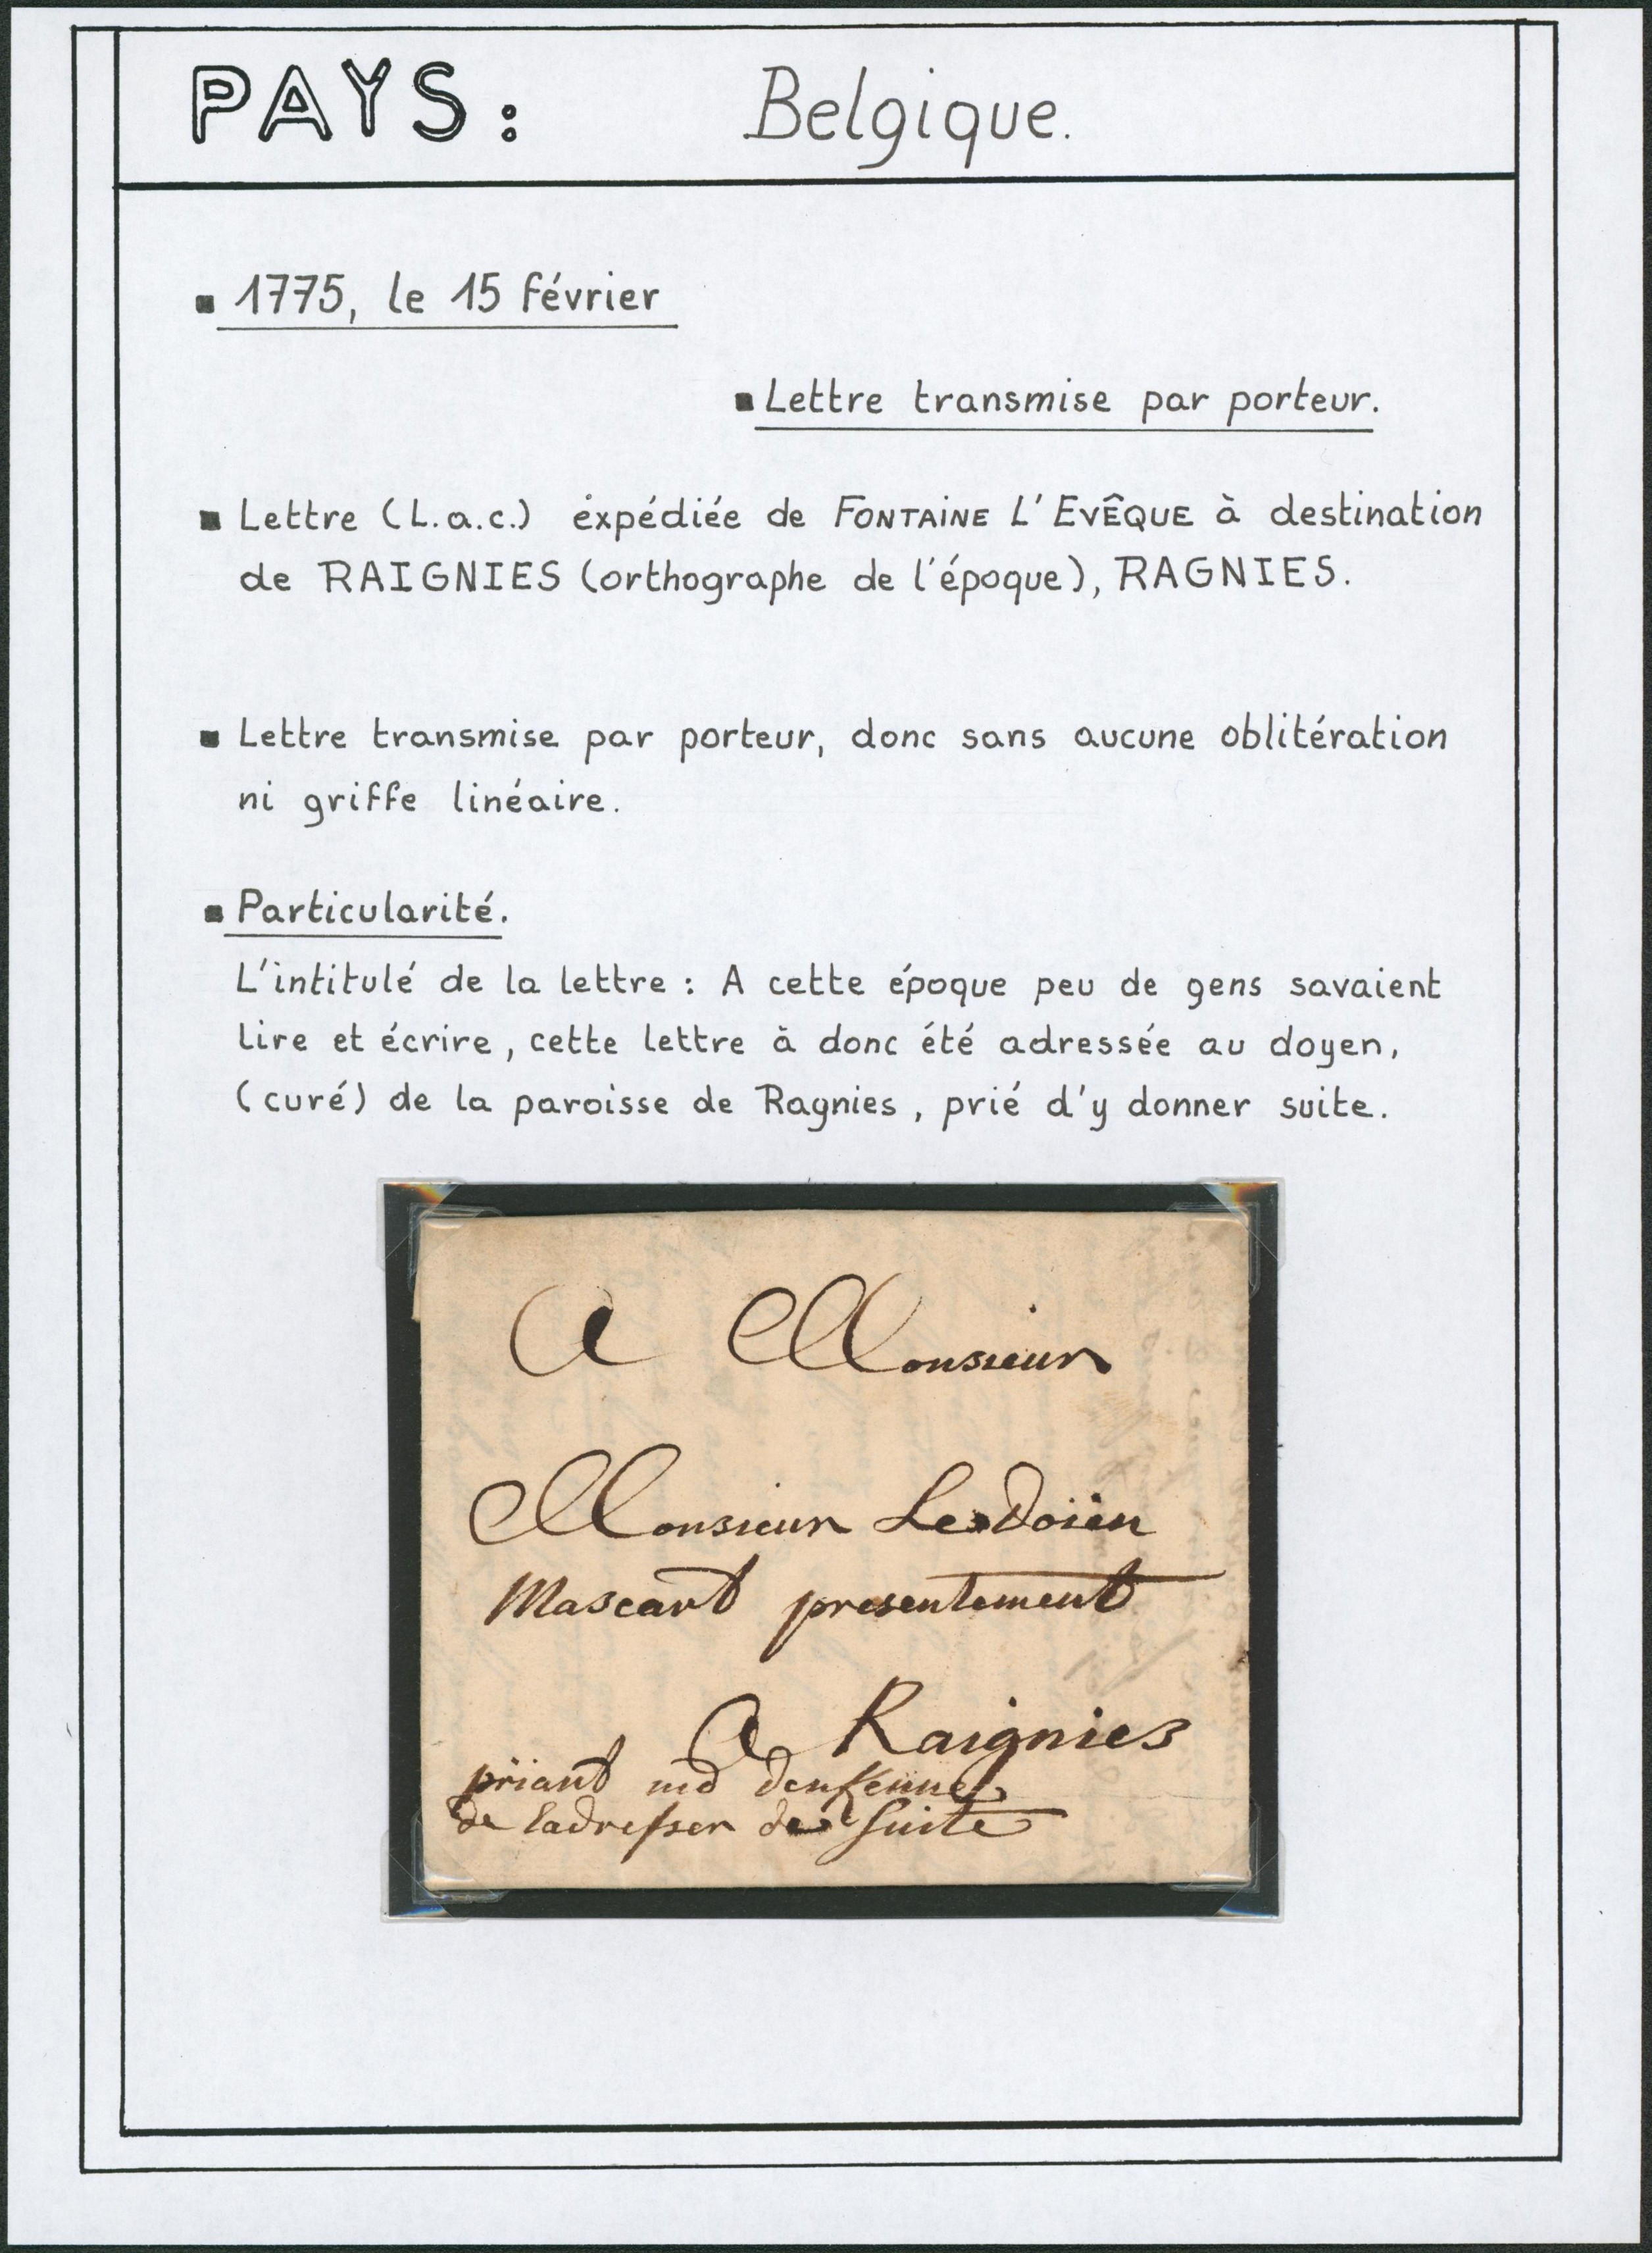 PAYS : Belgique.
1775, le 15 février
Lettre transmise par porteur.
Lettre (L.a.c.) éxpédiée de FONTAINE L'EVÊQUE à destination
de RAIGNIES (orthographe de l'époque), RAGNIES.
Lettre transmise par porteur, donc sans aucune oblitération
ni griffe linéaire.
Particularité.
L'intitulé de la lettre : A cette époque peu de gens savaient
lire et écrire, cette lettre à donc été adressée au doyen,
(curé) de la paroisse de Ragnies, prié d'y donner suite.
A Monsieur
Monsieur Le Doïen
Mascart presentement
A Raignies
priant
de Ladresser de Suite